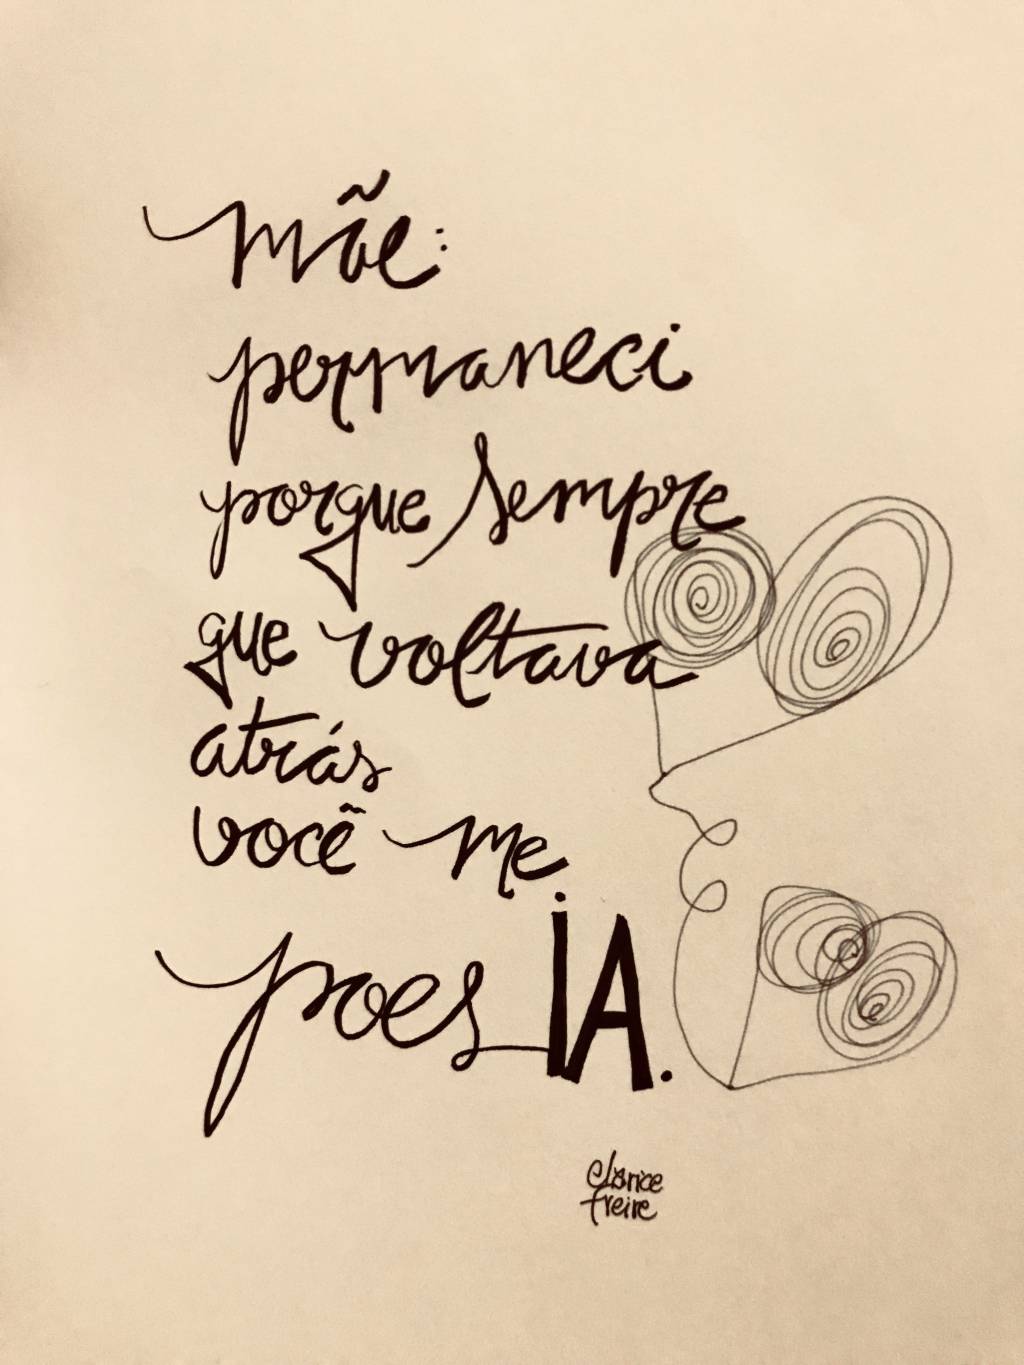 mãe:
permaneci
porque sempre
que voltava
atrás
você me
poesIA.
clarice
freire